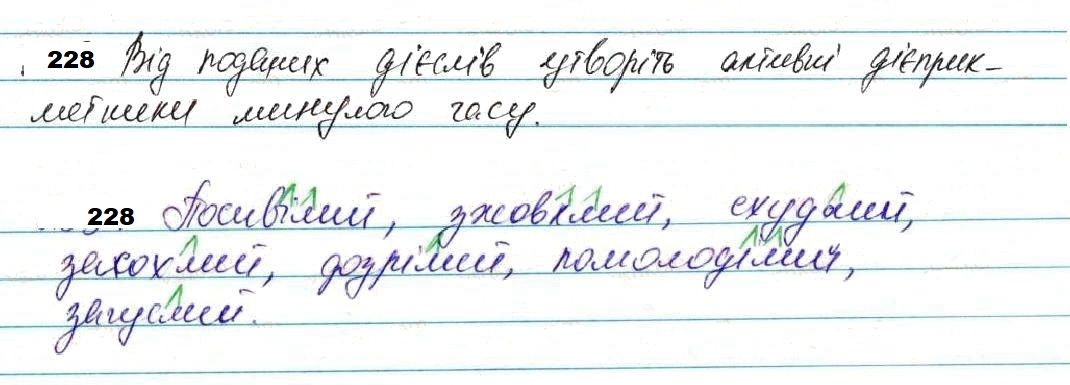 228 Від поданих дієслів утворіть активні дієприк-
метники минулого часу.
228 Посивілий, зжовклий, схудлий,
засохлий, дозрілий, помолоділий,
загуслий.